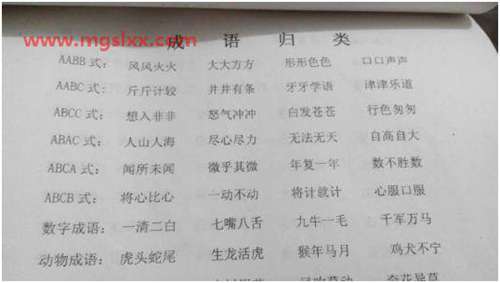 www.mgslxx.com
成语归类
AABB式: 风风火火 大大方方 形形色色 口口声声
AABC式: 斤斤计较 井井有条 牙牙学语 津津乐道
ABCC式: 想入非非 怒气冲冲 白发苍苍 行色匆匆
ABAC式: 人山人海 尽心尽力 无法无天 自高自大
ABCA式: 闻所未闻 微乎其微 年复一年 数不胜数
ABCB式: 将心比心 一动不动 将计就计 心服口服
数字成语: 一清二白 七嘴八舌 九牛一毛 千军万马
动物成语: 虎头蛇尾 生龙活虎 猴年马月 鸡犬不宁
奇花异草